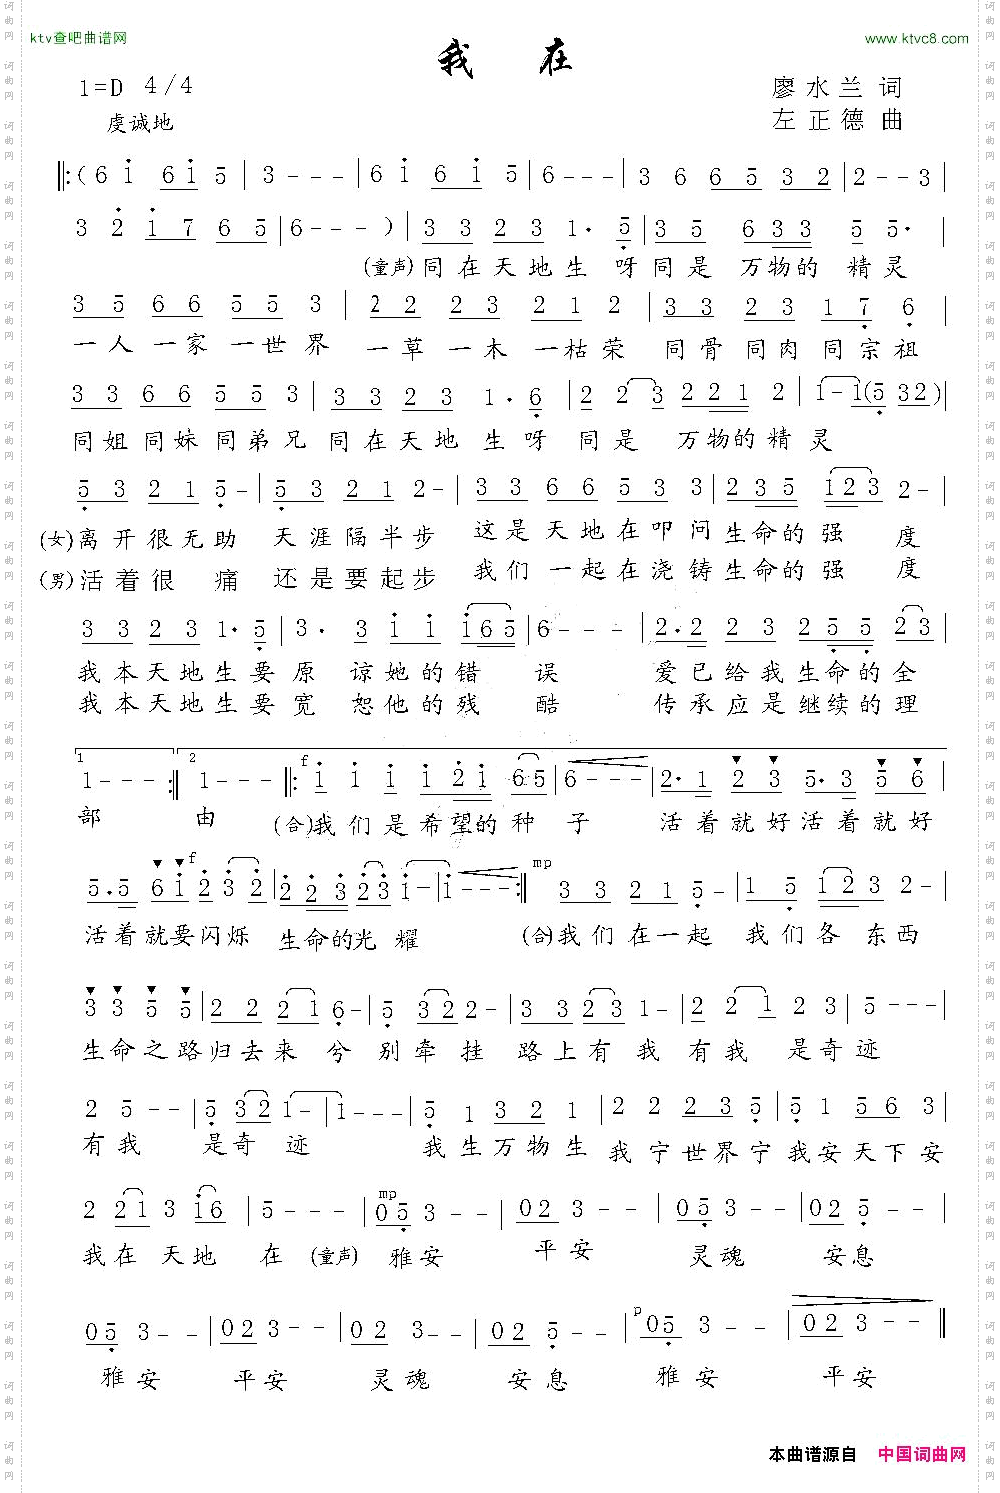 ktv查吧曲谱网 www.ktvc8.com
我 在
1=D 4/4 廖水兰 词
虔诚地 左正德 曲
‖:(6 1 6 1 5 | 3 - - - | 6 1 6 1 5 | 6 - - - | 3 6 6 5 3 2 | 2 - - 3 |
3 2 1 7 6 5 | 6 - - - ) | 3 3 2 3 1· 5 | 3 5 6 3 3 5 5· |
(童声)同在天地生 呀同是 万物的 精灵
3 5 6 6 5 5 3 | 2 2 2 3 2 1 2 | 3 3 2 3 1 7 6 |
一人一家一世界 一草一木一枯荣 同骨同肉同宗祖
3 3 6 6 5 5 3 | 3 3 2 3 1· 6 | 2 2 3 2 2 1 2 | 1 - 1(5 3 2) |
同姐同妹同弟兄 同在天地 生 呀 同是 万物的精灵
5 3 2 1 5 - | 5 3 2 1 2 - | 3 3 6 6 5 3 3 | 2 3 5 1 2 3 2 - |
(女)离开很无助 天涯隔半步 这是天地在叩问生命的强 度
(男)活着很 痛 还是要起步 我们一起在浇铸生命的强 度
3 3 2 3 1· 5 | 3· 3 1 1 1 6 5 | 6 - - - | 2· 2 2 3 2 5 5 2 3 |
我本天地生要原 谅她的错 误 爱已给我生命的全
我本天地生要宽 恕他的残 酷 传承应是继续的理
1 2 f
1 - - - :‖ 1 - - - ‖: 1 1 1 1 2 1 6 5 | 6 - - - | 2· 1 2 3 5· 3 5 6 |
部 由 (合)我们是希望的种 子 活着就好活着就好
f mp
5· 5 6 1 2 3 2 | 2 2 3 2 3 1 - | 1 - - - :‖ 3 3 2 1 5 - | 1 5 1 2 3 2 - |
活着就要闪烁 生命的光耀 (合)我们在一起 我们各 东西
3 3 5 5 | 2 2 2 1 6 - | 5 3 2 2 - | 3 3 2 3 1 - | 2 2 1 2 3 | 5 - - - |
生命之路归去来 兮 别牵挂 路上有 我 有我 是奇迹
2 5 - - | 5 3 2 1 - | 1 - - - | 5 1 3 2 1 | 2 2 2 3 5 | 5 1 5 6 3 |
有我 是奇 迹 我生万物生 我宁世界宁 我安天下安
mp
2 2 1 3 1 6 | 5 - - - | 0 5 3 - - | 0 2 3 - - | 0 5 3 - - | 0 2 5 - - |
我在 天地 在 (童声) 雅安 平安 灵魂 安息
p
0 5 3 - - | 0 2 3 - - | 0 2 3 - - | 0 2 5 - - | 0 5 3 - - | 0 2 3 - - ‖
雅安 平安 灵魂 安息 雅安 平安
本曲谱源自 中国词曲网